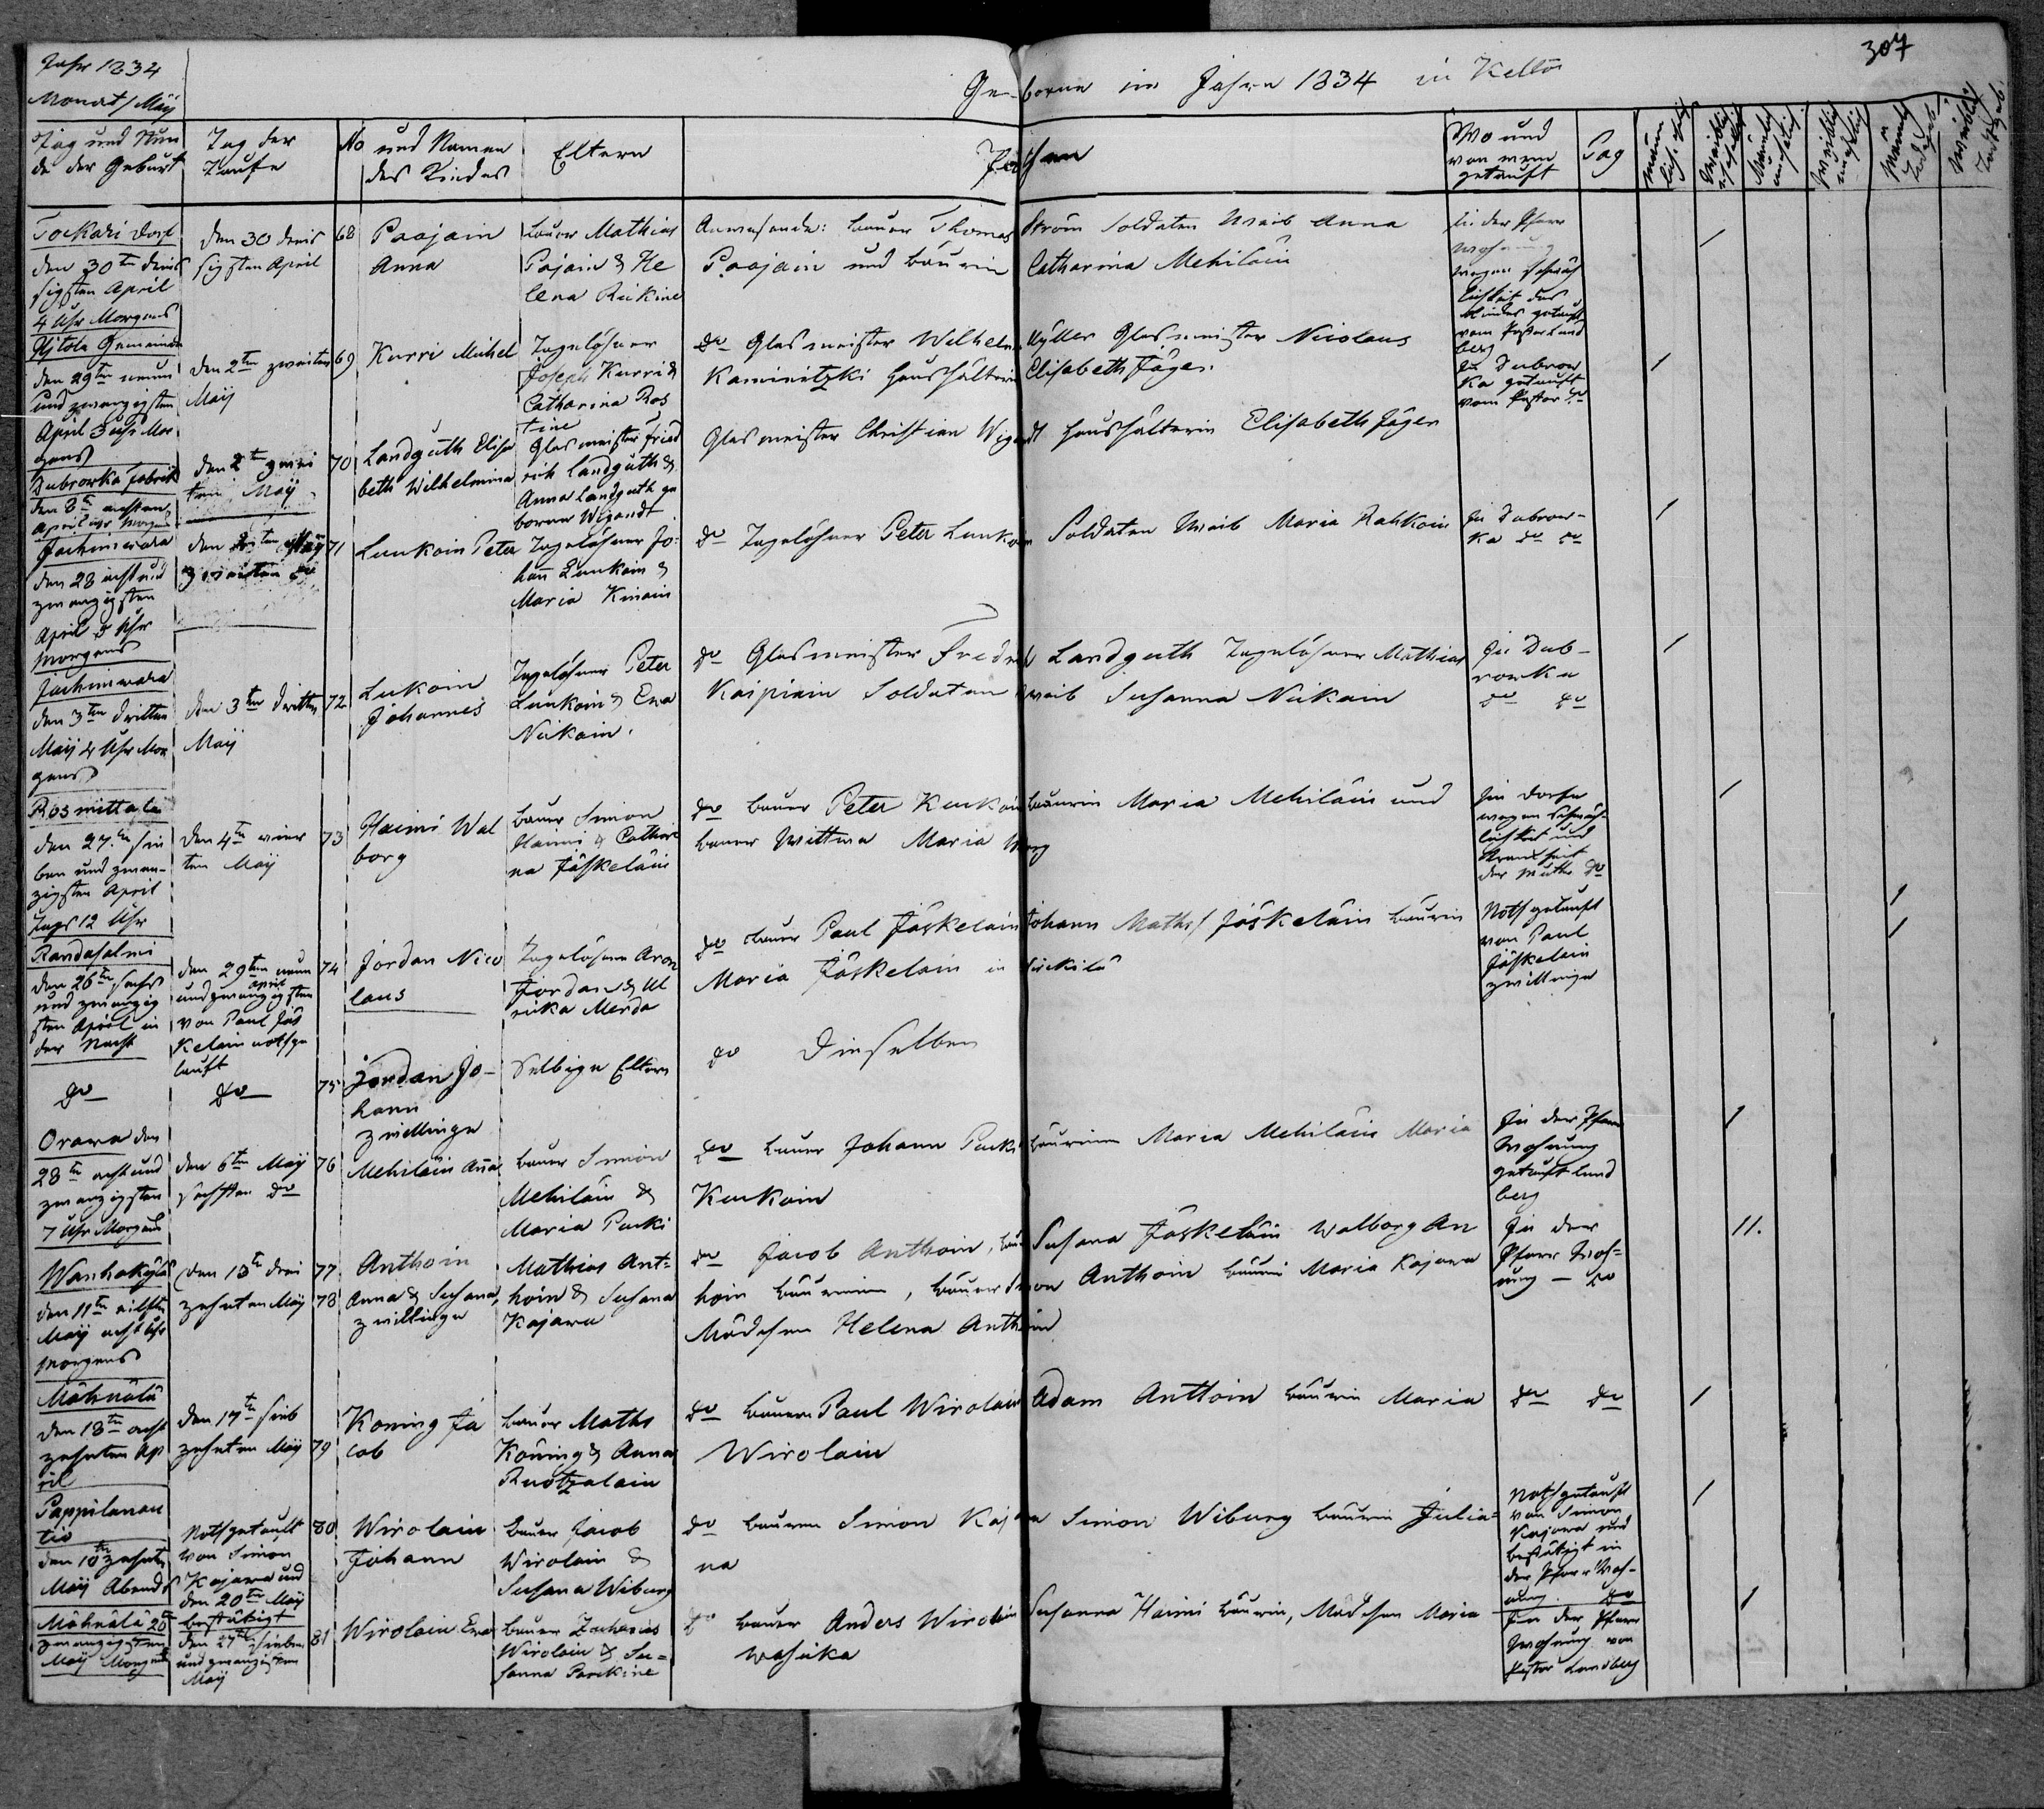 307
Jahr 1834
Monat / Maÿ
Geborne im Jahre 1834 in Keltos
Tag und Stun
de der Geburt
Tag der
Taufe
No und Namen
des Kindes
Eltern
Wo und
von wem
getauft
Tag
Tockari Dorf
den 30ten dreis
sigsten April
4 Uhr Morgens
den 30 dreis
sigsten April
68
Paajain
Anna
bauer Mathias
Pajain & He
lena Rikine
Anwesende: bauer Thomas Ström Soldaten Weib Anna
Paajain und bäurin Catharina Mehiläin
In der Pfarr
Wohnung
wegen schwäch
lichkeit des
Kindes getauft
vom Pastor Lund
berg
Gemeinde
den 29ten neun
und zwanzigsten
April 3 Uhr Mor
gens
den 2ten zweiten
Maÿ
69
Kurri Michel
Tagelöhner
Joseph Kurri &
Catharina Ros
tine
do Glasmeister Wilhelm Myller Glasmeister Nicolaus
Kaminitzki Haushälterin Elisabeth Jäger.
In Dubrow
ka getauft
vom Pastor do
Dubrowka Fabrik
den 8ten achten
April
den 2ten zwei
ten Maÿ
70
Landguth Elisa
beth Wilhelmina
Glasmeister Fried
rich Landguth &
Anna Landguth ge
borne Wigandt
Glasmeister Christian Wigandt Haushälterin Elisabeth Jäger
Jachimwara
den 28 acht und
zwanzigsten
April 5 Uhr
Morgens
den Maÿ
zweiten do
71
Lunkoin Peter
Tagelöhner Jo=
hann Lunkoin &
Maria Kinain
do Tagelöhner Peter Lunkoin Soldaten Weib Maria Rahkoin
In Dubrow-
ka do do
Jachimwara
den 3ten dritten
Maÿ Uhr Mor
gens
den 3ten dritten
Maÿ
72
Lukoin
Johannes
Tagelöhner Peter
Lunkoin & Ewa
Nickain.
do Glasmeister Fredrich Landguth Tagelöhner Mathias
Kaipiain Soldaten Weib Susanna Nickain
In Dub-
rowka
do do
Rosmittala
den 27ten sie
ben und zwan-
zigsten April
Tags 12 Uhr
den 4ten vier
ten Maÿ
73
Haimi Wal
borg
Bauer Simon
Haimi & Cathari
na Jäskeläin
do bauer Peter Kuckoin bäurin Maria Mehiläin und
bauer Wittwe Maria Warg
Im Dorfe
wegen Schwäch-
lichkeit und
Krankheit
der Mutter do
Randasalmi
den 26ten sechs
und zwanzig
sten April in
der Nacht
den 29ten neun
und zwanzigsten
april
von Paul Jäs
kelain nothge
tauft
74
Jordan Nico
laus
Tagelöhner Aron
Jordan & Ul
rika Merda
do bauer Paul Jäskelain Johann Maths/ Jäskeläin bäurin
Maria Jäskelain in
Nothgetauft
von Paul
Jäskelain
zwillinge
do
do
75
Jordan Jo-
hann
zwillinge
Selbige Eltern
do Dieselben
Orawa den
28ten acht und
zwanzigsten
7 Uhr Morgens
den 6ten Maÿ
sechsten do
76
Mehiläin Anna
bauer Simon
Mehiläin &
Maria Pucki
do bauer Johann Pucki bäurinen Maria Mehiläin Maria
Kuckoin
In der Pfarr
Wohnung
getauft Lund
berg
Wanhakylä
den 11ten eilften
Maÿ acht Uhr
Morgens
den 13ten drei
zehnten Maÿ
77
78
Anthoin
Anna & Susana,
zwillinge
Mathias Ant=
hoin & Susana
Kajawa
do Jacob Anthoin, Susana Jäskeläin Walborg An
hoin bäurinnen, bauer Simon Anthoin bäurin Maria Kajawa
Mädchen Helena Anthoin
In der
Pfarr Woh=
nung – do
11.
Mähnälä
den 18ten acht
zehnten Ap
ril
den 17ten sieb
zehnten Maÿ
79
Koning Ja
cob
bauer Maths
Köning & Anna
Ruotzalain
do bauern Paul Wirolain Adam Anttoin bäurin Maria
Wirolain
do do
Pappilanau
tio
den 10ten zehnten
Maÿ Abends
Nothgetauft
von Simon
Kajawa und
den 20ten Maÿ
bestätigt
80
Wirolain
Johann
bauer Jacob
Wirolain &
Susana Wiburg
do bauern Simon Kajawa Simon Wiburg bäurin Julia=
na
Nothgetauft
von Simon
Kajawa und
bestätigt in
der Pfarr Woh-
nung. do
Mähnälä 20ten
zwanzigsten
Maÿ Morgens
den 27ten sieben
und zwanzigsten
Maÿ
81
Wirolain Ewa
bauer Zacharias
Wirolain & Su=
sanna Parckine
do bauer Anders Wirolain Susanna Haimi bäurin, Mädchen Maria
Wasicka
In der Pfarr
Wohnung von
Pastor Lundberg